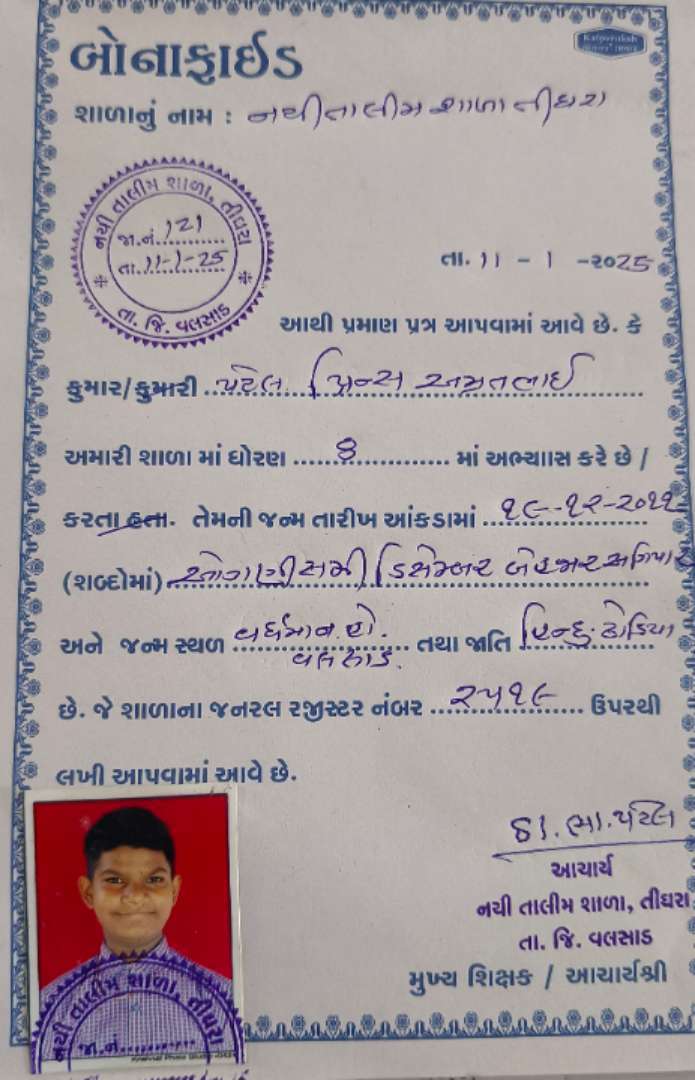 બોનાફાઈડ
Kalpavruksh
શાળાનું નામ : નચીતાલીમ શાળા તીઘરા
નચી તાલીમ શાળા, તીઘરા
જા.નં. 121
તા. 11-1-25
તા. જિ. વલસાડ
તા. 11 - 1 -૨૦25
આથી પ્રમાણ પત્ર આપવામાં આવે છે. કે
કુમાર/કુમારી પટેલ પ્રિન્સ અમ્રતભાઈ
અમારી શાળા માં ધોરણ 8 માં અભ્યાાસ કરે છે /
કરતા હતા. તેમની જન્મ તારીખ આંકડામાં ૧૯-૧૨-૨૦૧૧
(શબ્દોમાં) ઓગણીસમી ડિસેમ્બર બેહજાર અગિયાર
અને જન્મ સ્થળ વર્ધમાન હો. વલસાડ. તથા જાતિ હિન્દુ-ઢોડિયા
છે. જે શાળાના જનરલ રજીસ્ટર નંબર ૨૫૧૯ ઉપરથી
લખી આપવામાં આવે છે.
ડા. ભા. પટેલ
આચાર્ય
નચી તાલીમ શાળા, તીઘરા
તા. જિ. વલસાડ
મુખ્ય શિક્ષક / આચાર્યશ્રી
નચી તાલીમ શાળા, તીઘરા
જા.નં.